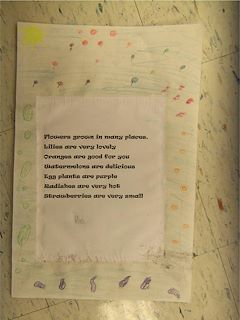 Flowers grown in many places.
Lilies are very lovely
Oranges are good for you
Watermelons are delicious
Egg plants are purple
Radishes are very hot
Strawberries are very small